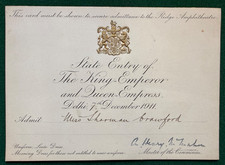 This card must be shown to secure admittance to the Ridge Amphitheatre
State Entry of
The King-Emperor
and Queen-Empress.
Delhi 7th December 1911.
Admit Miss Sherman Crawford
Uniform: Levée Dress
Morning Dress for those not entitled to wear uniform.
Master of the Ceremonies